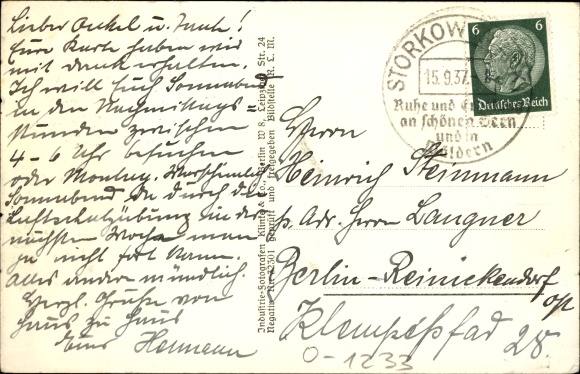 Lieber Onkel u. Tante!
Eure Karte haben wir
mit Dank erhalten.
Ich will Euch Sonnabend
in den Nachmittags
stunden zwischen
4-6 Uhr besuchen
oder Montag. Warscheinlich
Sonnabend da durch die
Luftschutzübung in der
nächsten Woche man
ja nicht fort kann.
Alles andere mündlich.
Herzl. Grüße von
Haus zu Haus
Euer Hermann
Industrie-Fotografen Klinke & Co., Berlin W 8, Leipziger Str. 24
Negativ Nr. 32501 geprüft und freigegeben Bildstelle R. L. M.
STORKOW
15.9.37
Ruhe und
an schönen Seen
und in
Wäldern
6 6
Deutsches Reich
Herrn
Heinrich Steinmann
p. Adr. Herrn Langner
Berlin-Reinickendorf
Ost
Klemkepfad
28.
0-1233